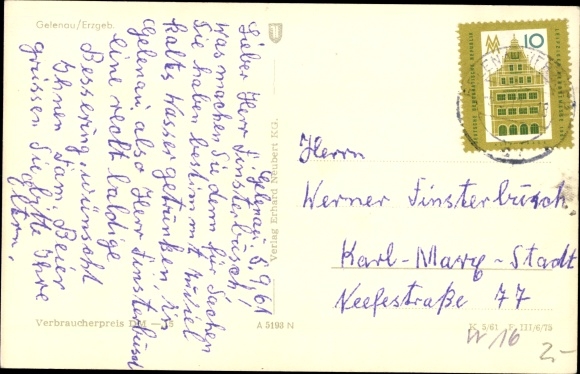 Gelenau/Erzgeb.
Gelenau 8.9.61
Lieber Herr Finsterbusch!
Was machen Sie denn für Sachen
Sie haben bestimmt zuviel
kaltes Wasser getrunken, in
Gelenau also Herr Finsterbusch
eine recht baldige
Besserung wünscht
Ihnen Fam. Beier
grüssen Sie bitte Ihre
Eltern.
Verlag Erhard Neubert KG.
Verbraucherpreis DM
A 5193 N
MM
10
DEUTSCHE DEMOKRATISCHE REPUBLIK
Herrn
Werner Finsterbusch
Karl-Marx-Stadt
Neefestraße 77
K 5/61 P III/6/75
W 16
2,-